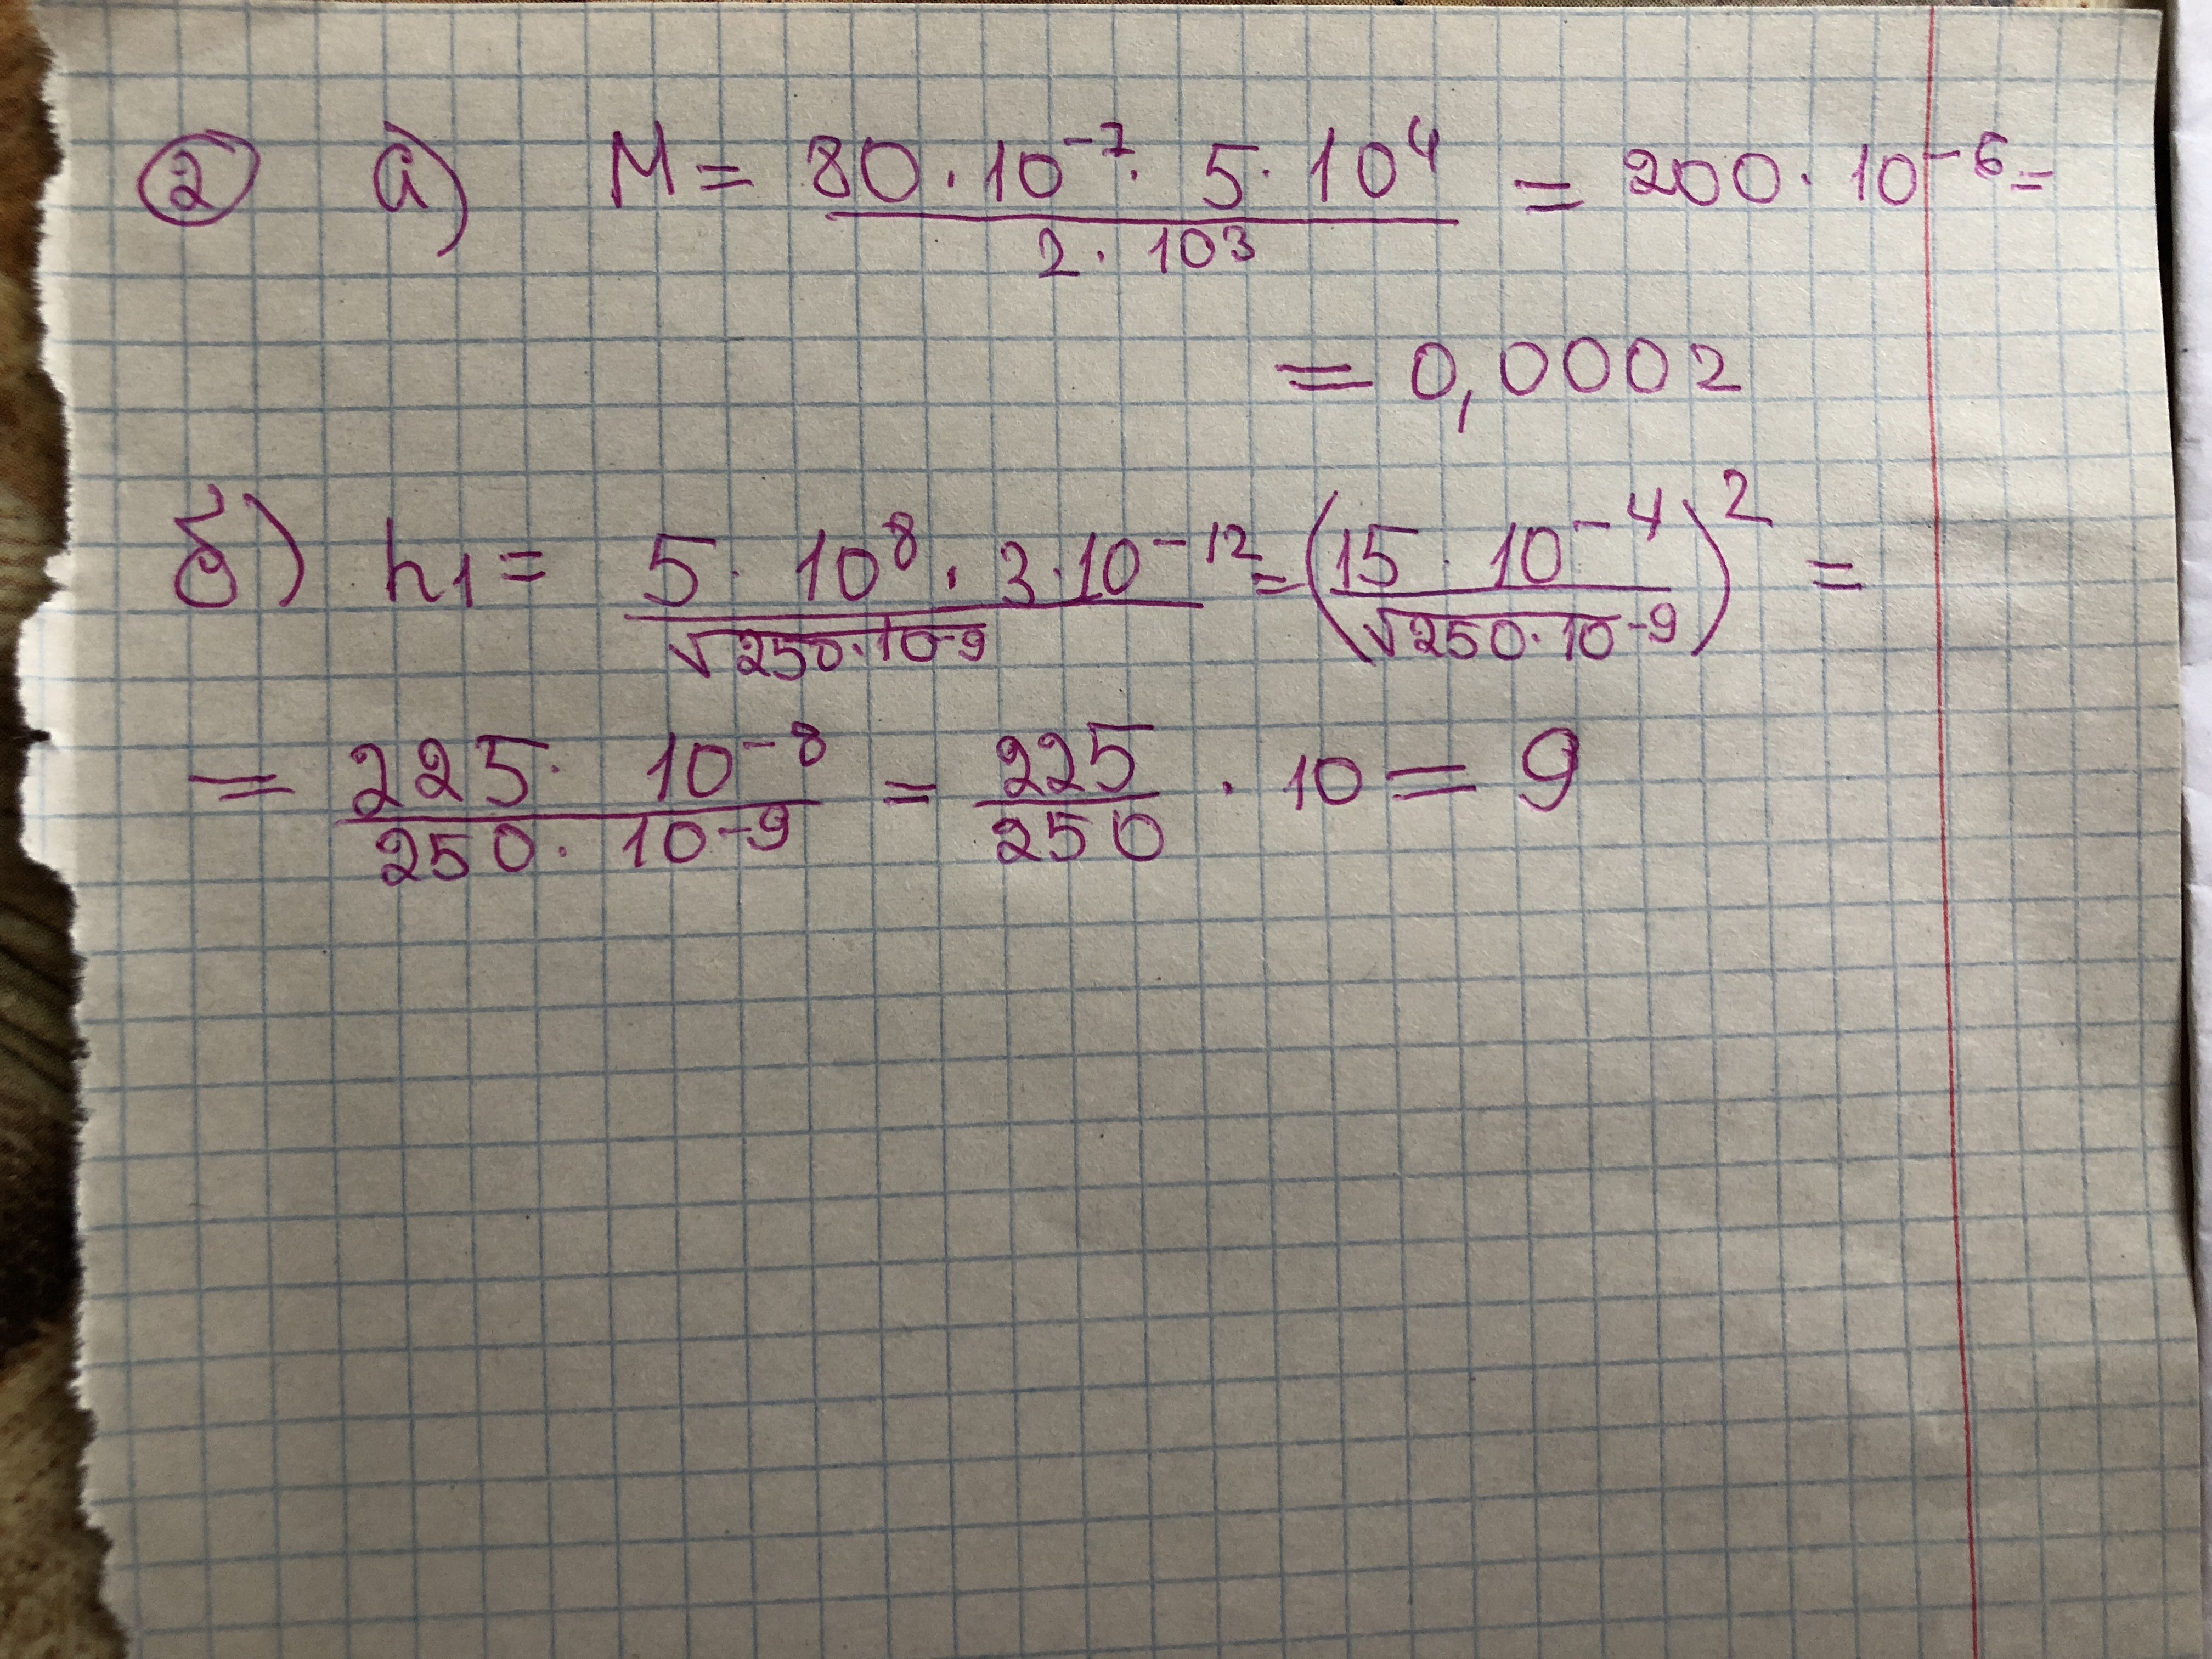 ② а) M = 80 · 10⁻⁷ · 5 · 10⁴ / 2 · 10³ = 200 · 10⁻⁶ =
= 0,0002
б) h₁ = 5 · 10⁸ · 3 · 10⁻¹² / √250 · 10⁻⁹ = (15 · 10⁻⁴ / √250 · 10⁻⁹)² =
= 225 · 10⁻⁸ / 250 · 10⁻⁹ = 225 / 250 · 10 = 9